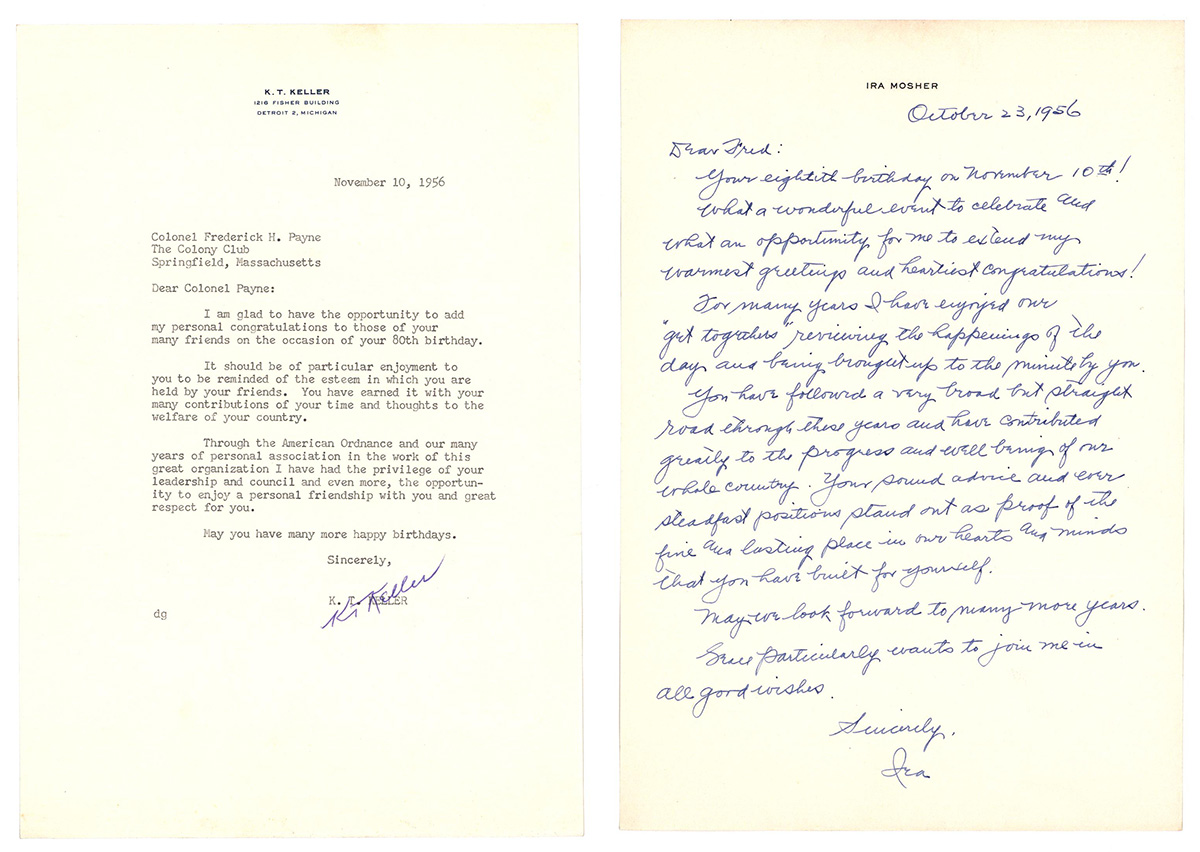 K. T. KELLER
1216 FISHER BUILDING
DETROIT 2, MICHIGAN
November 10, 1956
Colonel Frederick H. Payne
The Colony Club
Springfield, Massachusetts
Dear Colonel Payne:
I am glad to have the opportunity to add
my personal congratulations to those of your
many friends on the occasion of your 80th birthday.
It should be of particular enjoyment to
you to be reminded of the esteem in which you are
held by your friends. You have earned it with your
many contributions of your time and thoughts to the
welfare of your country.
Through the American Ordnance and our many
years of personal association in the work of this
great organization I have had the privilege of your
leadership and council and even more, the opportun-
ity to enjoy a personal friendship with you and great
respect for you.
May you have many more happy birthdays.
Sincerely,
K. T. Keller
K. T. KELLER
dg
IRA MOSHER
October 23, 1956
Dear Fred:
Your eightith birthday on November 10th!
What a wonderful event to celebrate and
what an opportunity for me to extend my
warmest greetings and heartiest congratulations!
For many years I have enjoyed our
"get togethers" reviewing the happenings of the
day and being brought up to the minute by you.
You have followed a very broad but straight
road through these years and have contributed
greatly to the progress and well being of our
whole country. Your sound advice and ever
steadfast positions stand out as proof of the
fine and lasting place in our hearts and minds
that you have built for yourself.
May we look forward to many more years.
Grace particularly wants to join me in
all good wishes.
Sincerely,
Ira